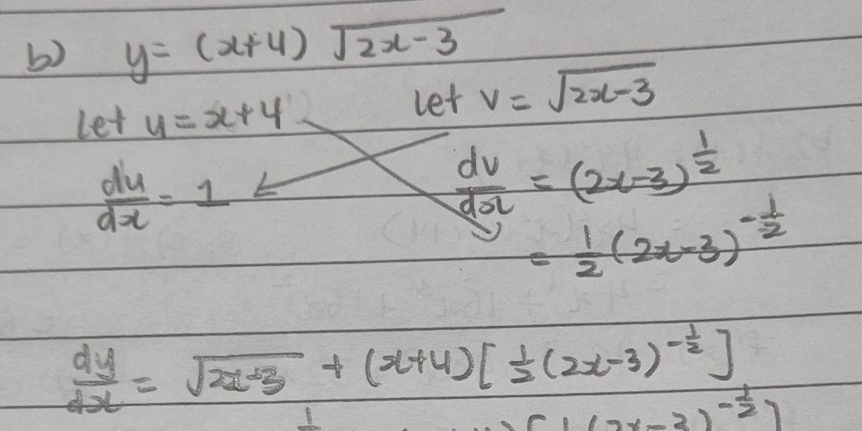 b) y = (x+4) √2x-3
let u = x+4 let v = √2x-3
du/dx = 1 dv/dx = (2x-3)^1/2
= 1/2 (2x-3)^-1/2
dy/dx = √2x-3 + (x+4)[1/2 (2x-3)^-1/2]